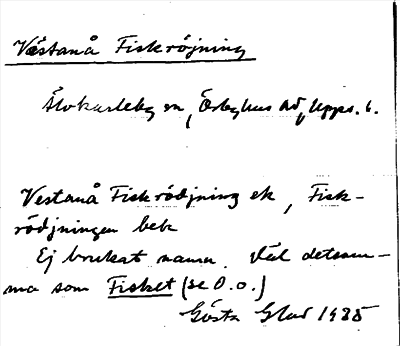 Västanå Fiskröjning
Älvkarleby sn, Örbyhus hd, Upps. l.
Vestanå Fiskrödjning ek, Fisk-
rödjningen bek
Ej brukat namn. Väl detsam-
ma som Fisket (se D.o.)
Gösta 1935